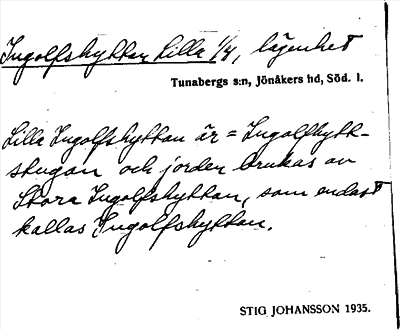 Ingolfshyttan, Lilla 1/4, lägenhet
Tunabergs s:n, Jönåkers hd, Söd. l.
Lilla Ingolfshyttan är = Ingolfhytt-
stugan och jorden brukas av
Stora Ingolfshyttan, som endast
kallas Ingolfshyttan.
STIG JOHANSSON 1935.